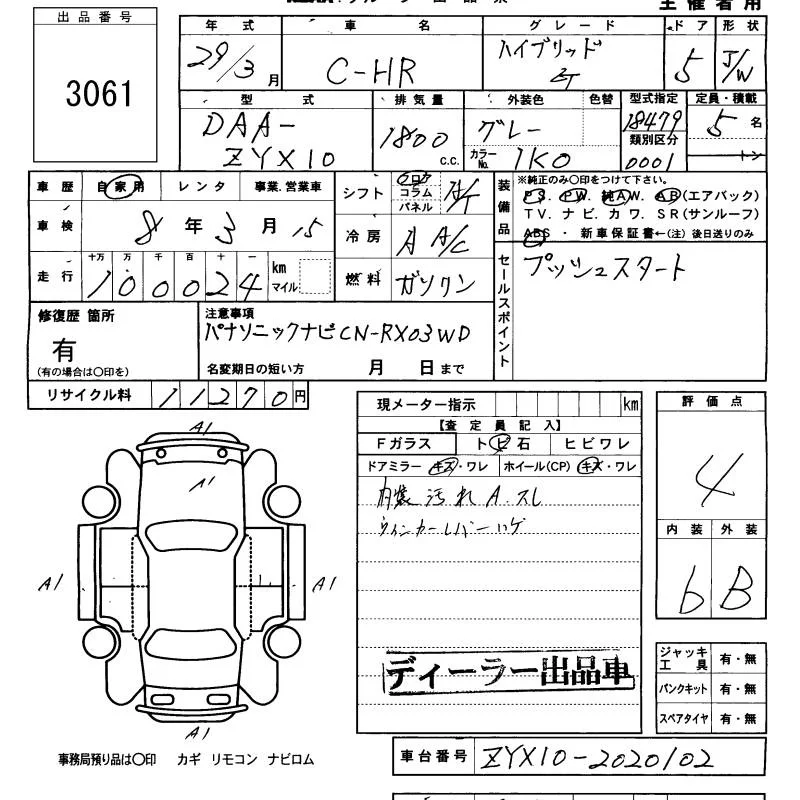 主催者用
出品番号
3061
年式 車名 グレード ドア 形状
29/3月 C-HR ハイブリッド 5 J/W
型式 排気量 外装色 色替 型式指定 定員・積載
DAA-ZYX10 1800 c.c. グレー 18479 5名
カラーNo. 1K0 類別区分 0001 トン
車歴 自家用 レンタ 事業.営業車
車検 8年3月15
走行 十万 万 千 百 十 一
100024 km マイル
シフト フロア コラム パネル AT
冷房 A A/C
燃料 ガソリン
装備品 ※純正のみ〇印をつけて下さい。
PS. PW. 純AW. AB(エアバック)
TV. ナビ. カワ. SR(サンルーフ)
ABS ・ 新車保証書←(注) 後日送りのみ
セールスポイント
プッシュスタート
修復歴 箇所
有
(有の場合は〇印を)
注意事項
パナソニックナビCN-RX03WD
名変期日の短い方 月 日まで
リサイクル料 11270円
現メーター指示 km
【査定員記入】
Fガラス トビ石 ヒビワレ
ドアミラー キズ・ワレ ホイール(CP) キズ・ワレ
内装汚れ A.スレ
ウィンカーレバーハゲ
ディーラー出品車
評価点
4
内装 外装
6 B
ジャッキ工具 有・無
パンクキット 有・無
スペアタイヤ 有・無
A1
A1
A1 A1
A1
事務局預り品は〇印 カギ リモコン ナビロム
車台番号 ZYX10-2020102